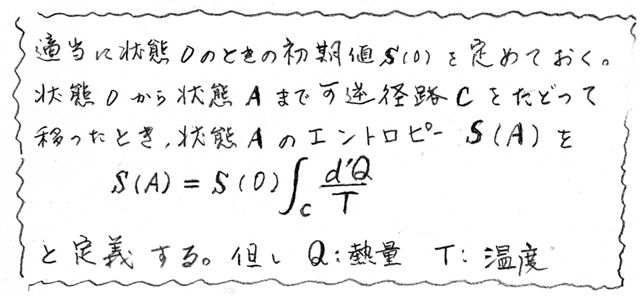 適当に状態Oのときの初期値S(O)を定めておく。
状態Oから状態Aまで可逆径路Cをたどって
移ったとき,状態AのエントロピーS(A)を
S(A) = S(O)∫_C d'Q/T
と定義する。但し Q:熱量 T:温度